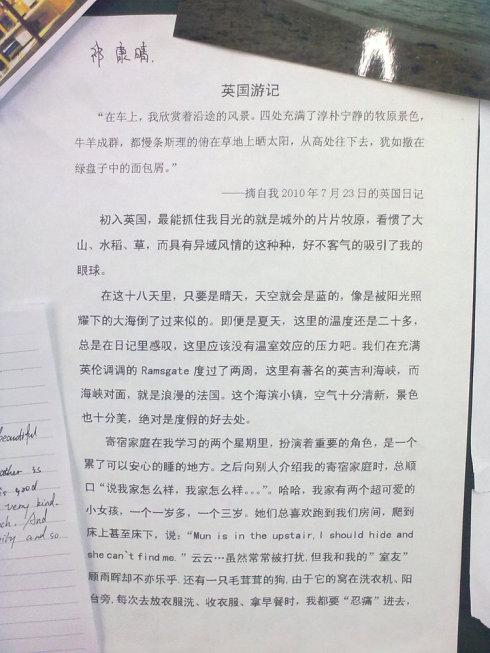 祁康晴.
英国游记
“在车上，我欣赏着沿途的风景。四处充满了淳朴宁静的牧原景色，
牛羊成群，都慢条斯理的俯在草地上晒太阳，从高处往下去，犹如撒在
绿盘子中的面包屑。”
——摘自我 2010 年 7 月 23 日的英国日记
初入英国，最能抓住我目光的就是城外的片片牧原，看惯了大
山、水稻、草，而具有异域风情的这种种，好不客气的吸引了我的
眼球。
在这十八天里，只要是晴天，天空就会是蓝的，像是被阳光照
耀下的大海倒了过来似的。即便是夏天，这里的温度还是二十多，
总是在日记里感叹，这里应该没有温室效应的压力吧。我们在充满
英伦调调的 Ramsgate 度过了两周，这里有著名的英吉利海峡，而
海峡对面，就是浪漫的法国。这个海滨小镇，空气十分清新，景色
也十分美，绝对是度假的好去处。
寄宿家庭在我学习的两个星期里，扮演着重要的角色，是一个
累了可以安心的睡的地方。之后向别人介绍我的寄宿家庭时，总顺
口“说我家怎么样，我家怎么样。。。”。哈哈，我家有两个超可爱的
小女孩，一个一岁多，一个三岁。她们总喜欢跑到我们房间，爬到
床上甚至床下，说：“Mun is in the upstair, I should hide and
she can`t find me.”云云…虽然常常被打扰,但我和我的”室友”
顾雨晖却不亦乐乎.还有一只毛茸茸的狗,由于它的窝在洗衣机、阳
台旁,每次去放衣服洗、收衣服、拿早餐时，我都要“忍痛”进去，
beautiful
other is
is good
very kind.
And
and so